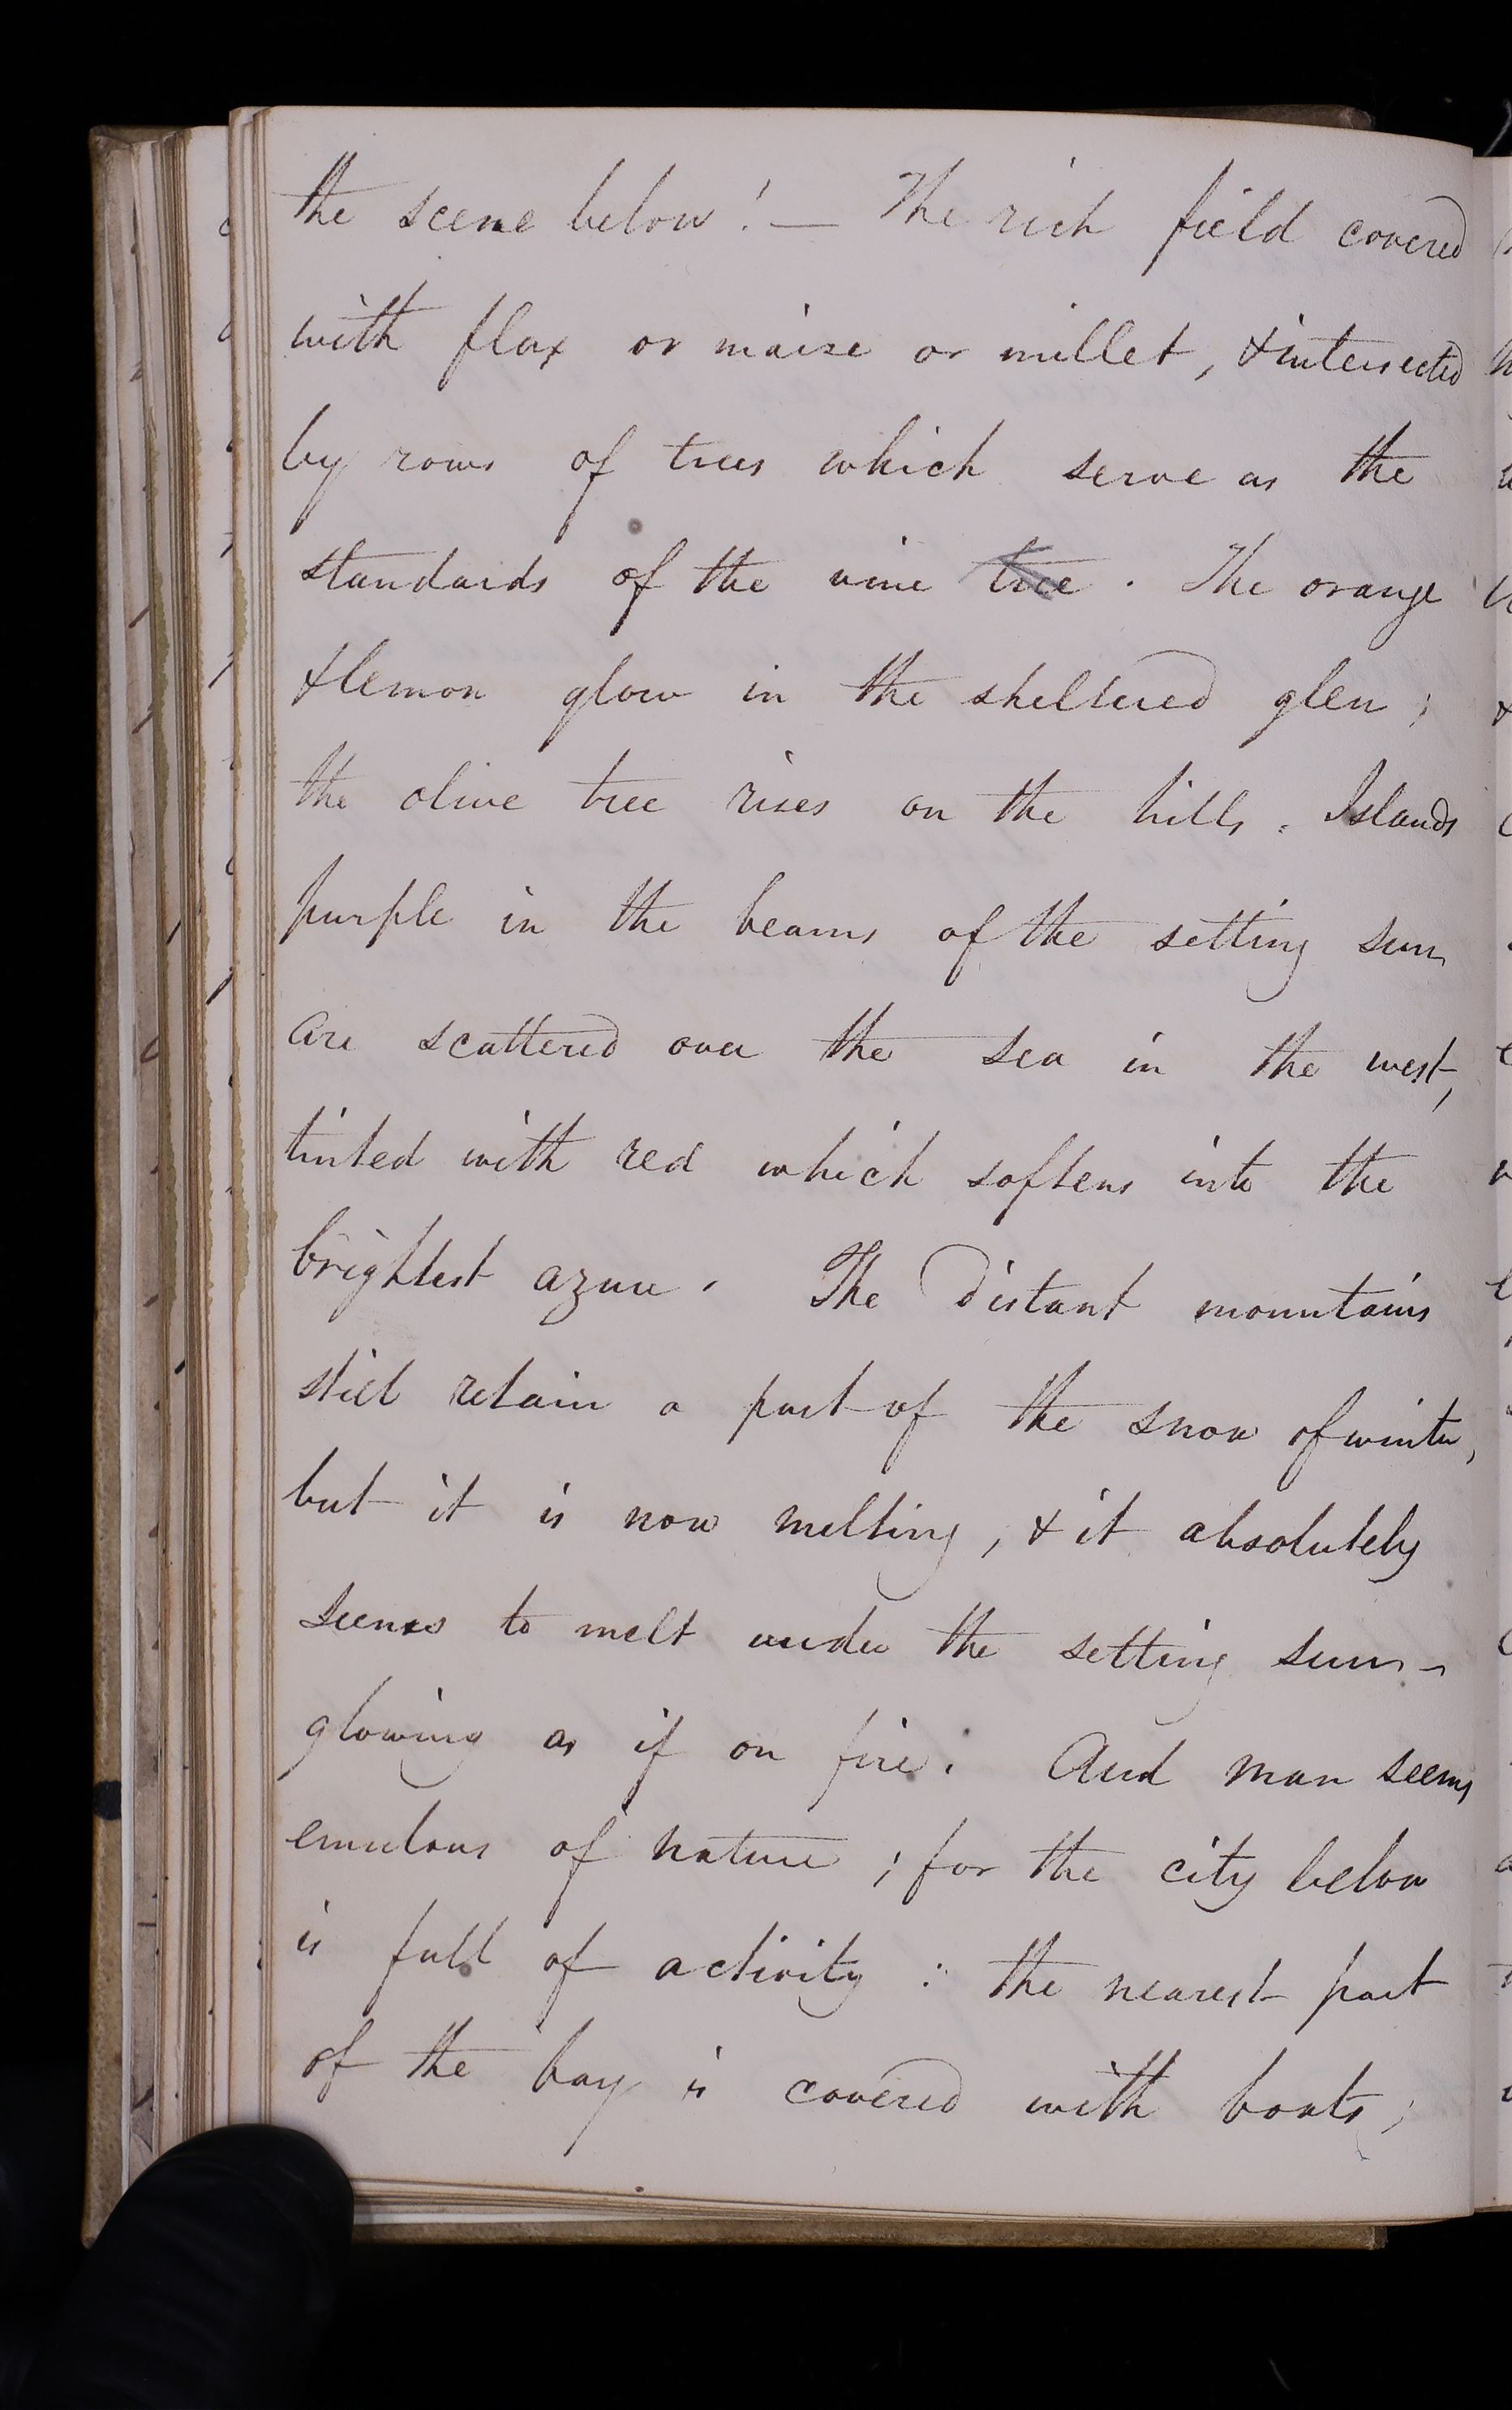 the scene below! — The rich field covered
with flax or maize or millet, & intersected
by rows of trees which serve as the
standards of the vine tree. The orange
& lemon glow in the sheltered glen;
the olive tree rises on the hills. Islands
purple in the beams of the setting sun
are scattered over the sea in the west,
tinted with red which softens into the
brightest azure. The distant mountains
still retain a part of the snow of winter,
but it is now melting, & it absolutely
seems to melt under the setting sun -
glowing as if on fire. And man seems
emulous of nature; for the city below
is full of activity: the nearest part
of the bay is covered with boats;